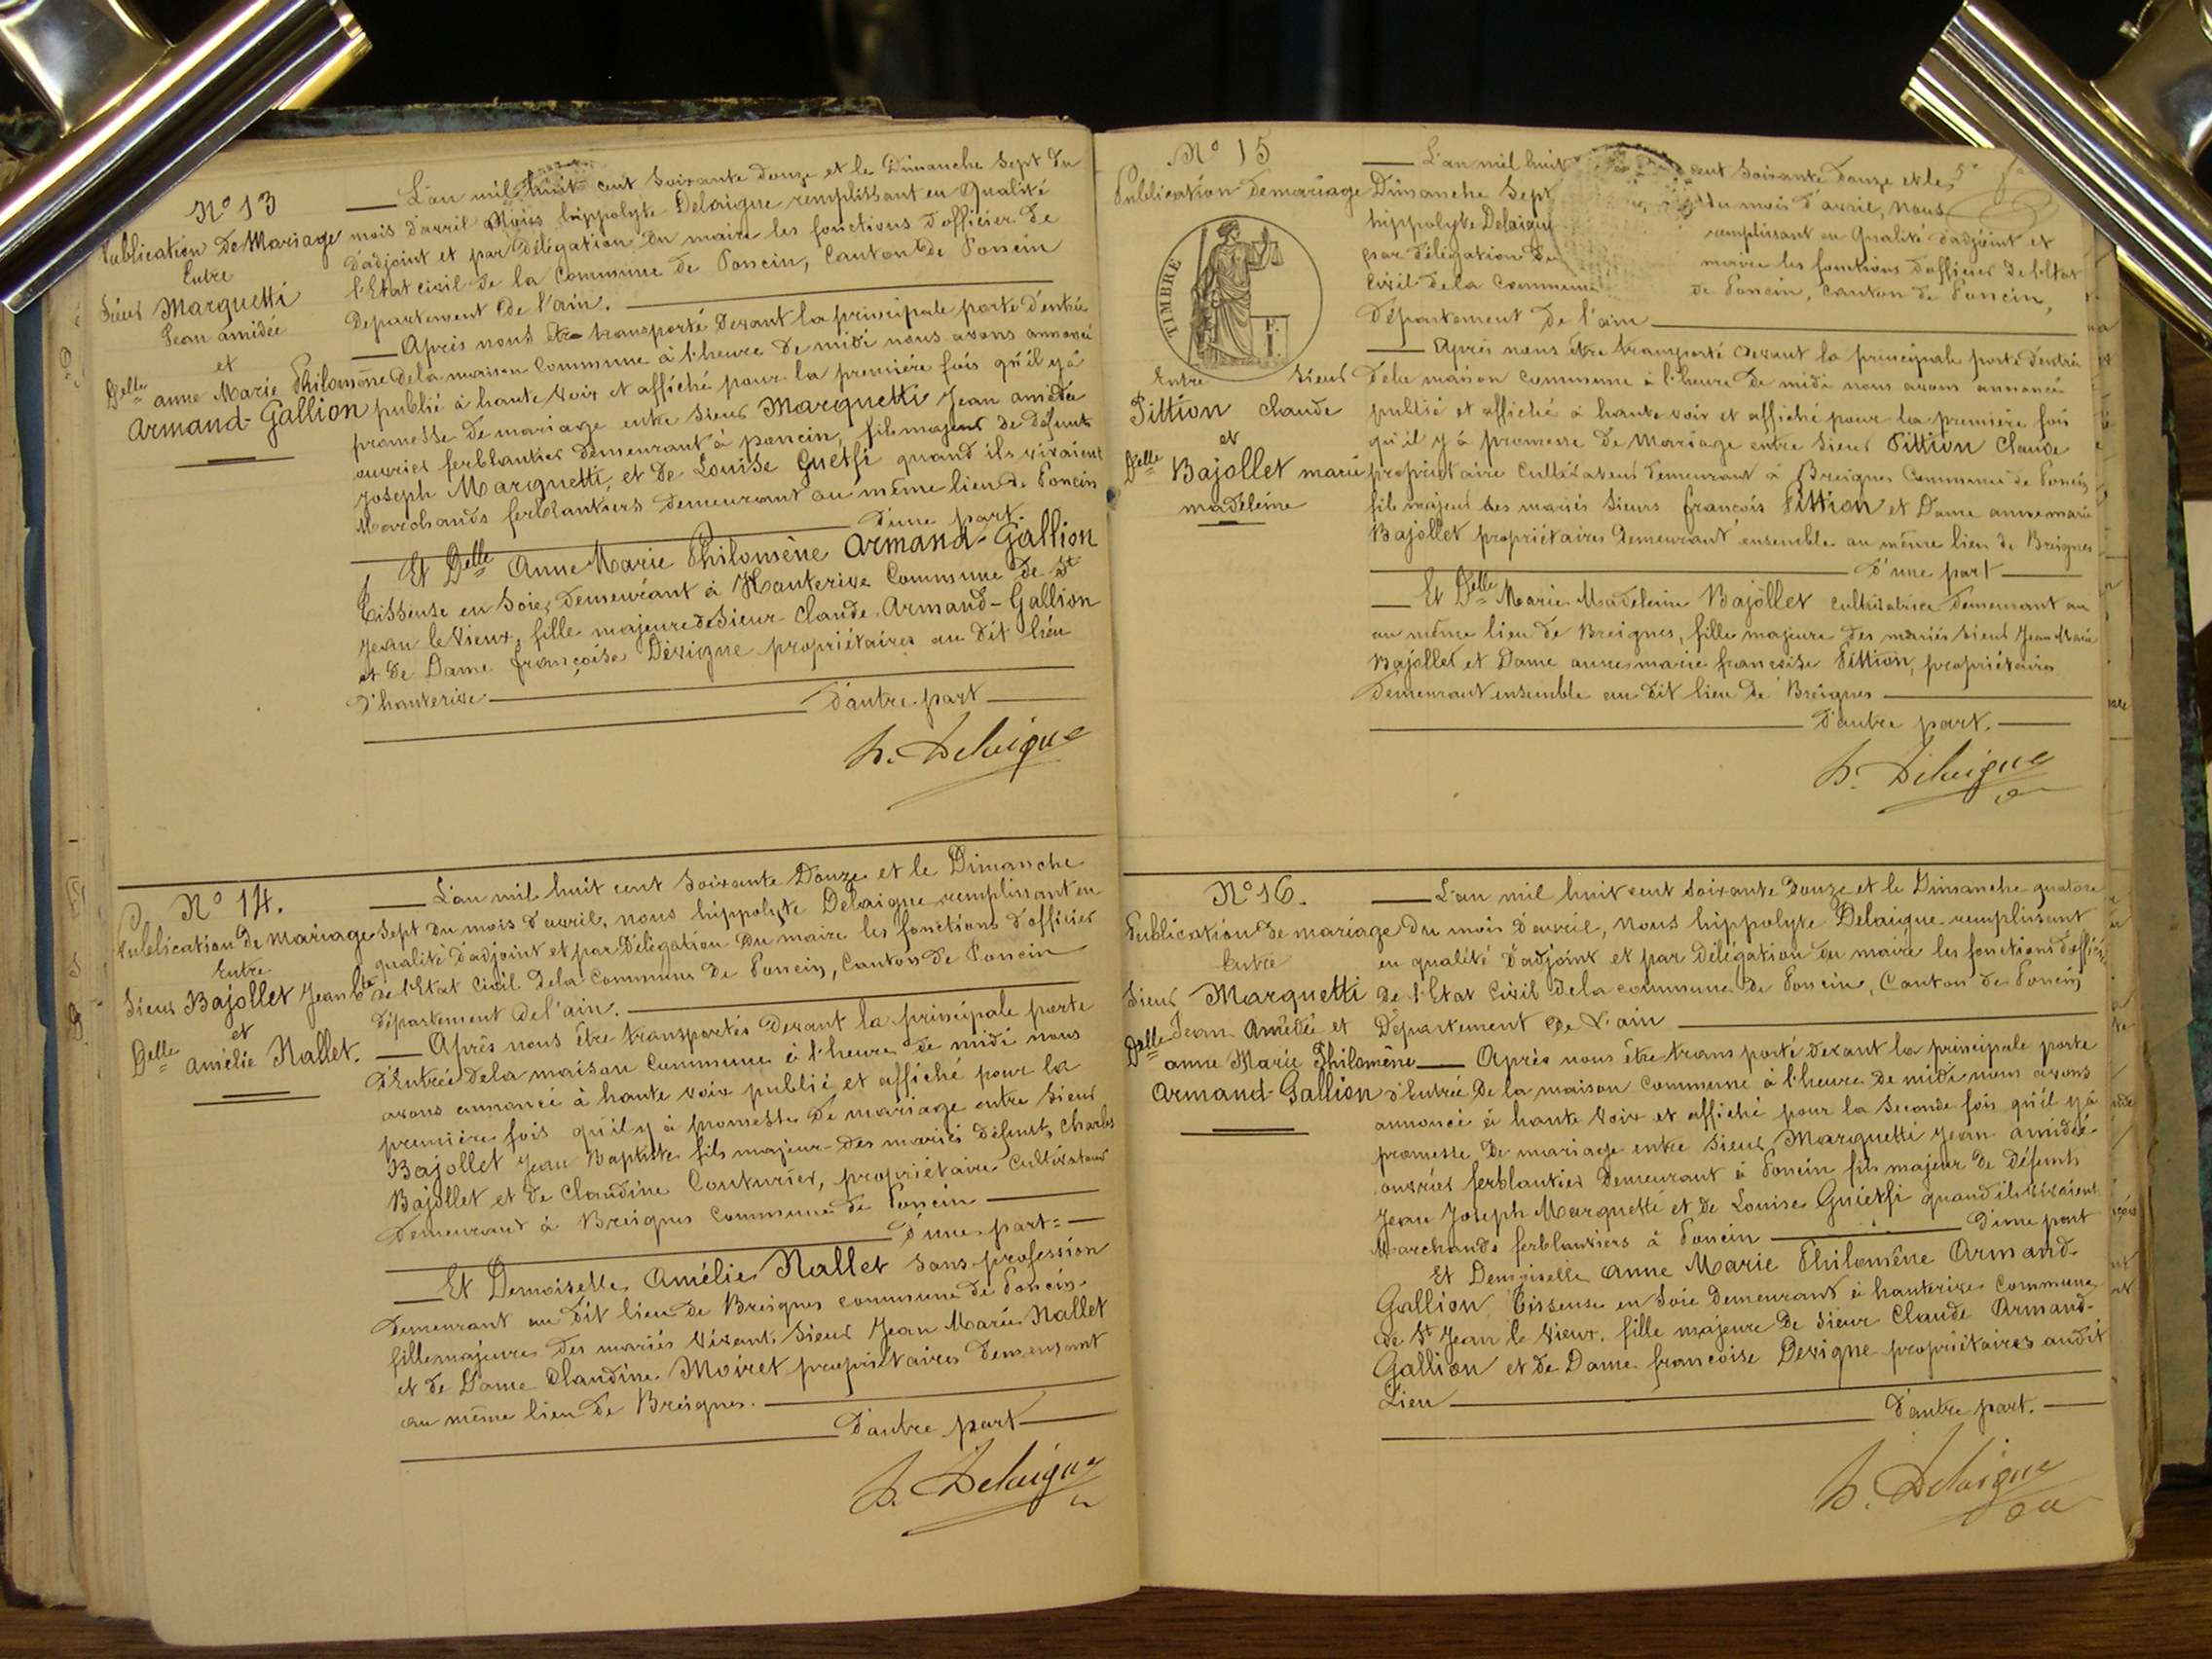 Nº 13
Publication De Mariage
Entre
Sieur Marquetti
Jean amidée
et
Delle anne Marie Philomène
Armand-Gallion
L'an mil huit cent soixante douze et le Dimanche sept du
mois d'avril Nous hippolyte Delaigue remplissant en qualité
d'adjoint et par délégation du maire les fonctions d'officier de
l'Etat civil de la Commune de Poncin, Canton de Poncin
Département de l'ain.
Après nous être transporté devant la principale porte d'entrée
de la maison Commune à l'heure de midi nous avons annoncé
publié à haute voix et affiché pour la première fois qu'il y à
promesse de mariage entre sieur Marquetti Jean amidée
ouvrier ferblantier demeurant à poncin, fils majeur de défunts
Joseph Marquetti, et de Louise Guetfi quand ils vivaient
Marchands ferblantiers demeurant au même lieu de Poncin
d'une part.
Et Delle Anne Marie Philomène Armand-Gallion
Tisseuse en Soie, demeurant à Hauterive Commune de St
Jean le Vieux, fille majeure de Sieur Claude Armand-Gallion
et de Dame françoise Dérigne propriétaires au dit lieu
d'hauterive
d'autre part
h. Delaigue
Nº 14.
Publication de mariage
Entre
Sieur Bajollet Jean Bte
et
Delle Amélie Nallet.
L'an mil huit cent soixante Douze et le Dimanche
sept du mois d'avril, nous hippolyte Delaigue remplissant en
qualité d'adjoint et par délégation du maire les fonctions d'officier
de l'Etat Civil dela Commune de Poncin, Canton de Poncin
département del'ain.
Après nous être transportés devant la principale porte
d'Entrée dela maison Commune à l'heure de midi nous
avons annoncé à haute voix publié et affiché pour la
première fois qu'il y à promesse de mariage entre Sieur
Bajollet Jean Baptiste fils majeur des mariés défunts Charles
Bajollet et de Claudine Couturier, propriétaire Cultivateur
demeurant à Breignes Commune de Poncin
d'une part=
Et Demoiselle Amélie Nallet sans profession
demeurant au dit lieu de Breignes commune de Poncin
fille majeure des mariés vivants Sieur Jean Marie Nallet
et de Dame Claudine Moiret propriétaires demeurant
au même lieu de Breignes.
D'autre part
h. Delaigue
Nº 15
Publication de mariage
TIMBRE
Entre Sieur
Pittion Claude
et
Delle Bajollet marie
madeleine
L'an mil huit cent soixante douze et le
Dimanche Sept du mois d'avril, nous
hippolyte Delaigue remplissant en qualité d'adjoint et
par délégation du maire les fonctions d'officier de l'Etat
Civil dela Commune de Poncin, canton de Poncin,
Département de l'ain
Après nous être transporté devant la principale porte d'entrée
dela maison commune à l'heure de midi nous avons annoncé
publié et affiché à haute voix et affiché pour la première fois
qu'il y à promesse de mariage entre Sieur Pittion Claude
propriétaire Cultivateur demeurant à Breignes Commune de Poncin
fils majeur des mariés Sieurs françois Pittion et Dame anne marie
Bajollet propriétaires demeurant ensemble au même lieu de Breignes
d'une part
Et Delle Marie Madeleine Bajollet cultivatrice demeurant au
au même lieu de Breignes, fille majeure des mariés Sieur Jean Marie
Bajollet et Dame anne marie françoise Pittion, propriétaires
demeurant ensemble au dit lieu de Breignes
d'autre part.
h. Delaigue
Nº 16.
Publication de mariage
Entre
Sieur Marquetti
Jean Amédée et
Delle anne Marie Philomène
Armand-Gallion
L'an mil huit cent soixante Douze et le Dimanche quatorze
du mois d'avril, Nous hippolyte Delaigue remplissant
en qualité d'adjoint et par délégation du maire les fonctions d'officier
de l'Etat Civil dela commune de Poncin, Canton de Poncin
Département de L'ain
Après nous être transporté devant la principale porte
d'Entrée de la maison Commune à l'heure de midi nous avons
annoncé à haute voix et affiché pour la seconde fois qu'il y à
promesse de mariage entre Sieur Marquetti Jean amidée
ouvrier ferblantier demeurant à Poncin fils majeur de défunts
Jean Joseph Marquetti et de Louise Guietfi quand ils vivaient
Marchands ferblantiers à Poncin d'une part
Et Demoiselle anne Marie Philomène Armand-
Gallion Tisseuse en Soie demeurant à hauterive Commune
de St Jean le Vieux, fille majeure de Sieur Claude Armand-
Gallion et de Dame françoise Derigne propriétaires audit
Lieu
d'autre part.
h. Delaigue